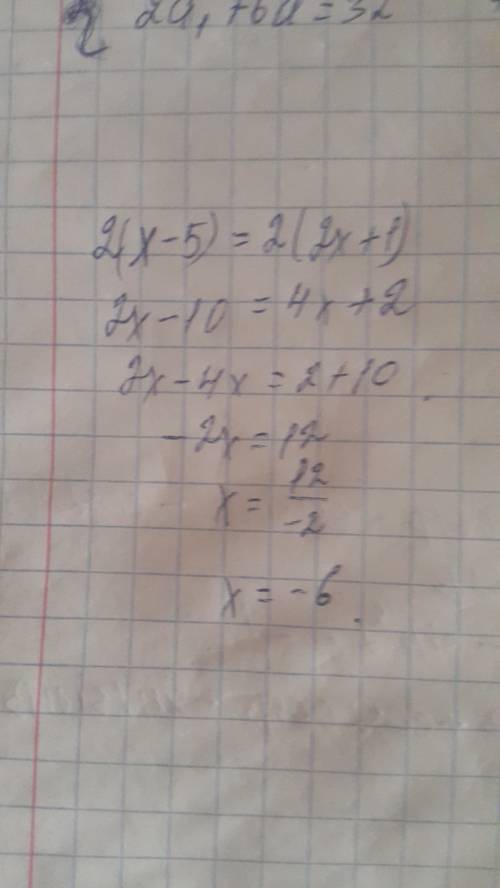 2a₁+6d=32
2(x-5)=2(2x+1)
2x-10=4x+2
2x-4x=2+10
-2x=12
x=12/-2
x=-6